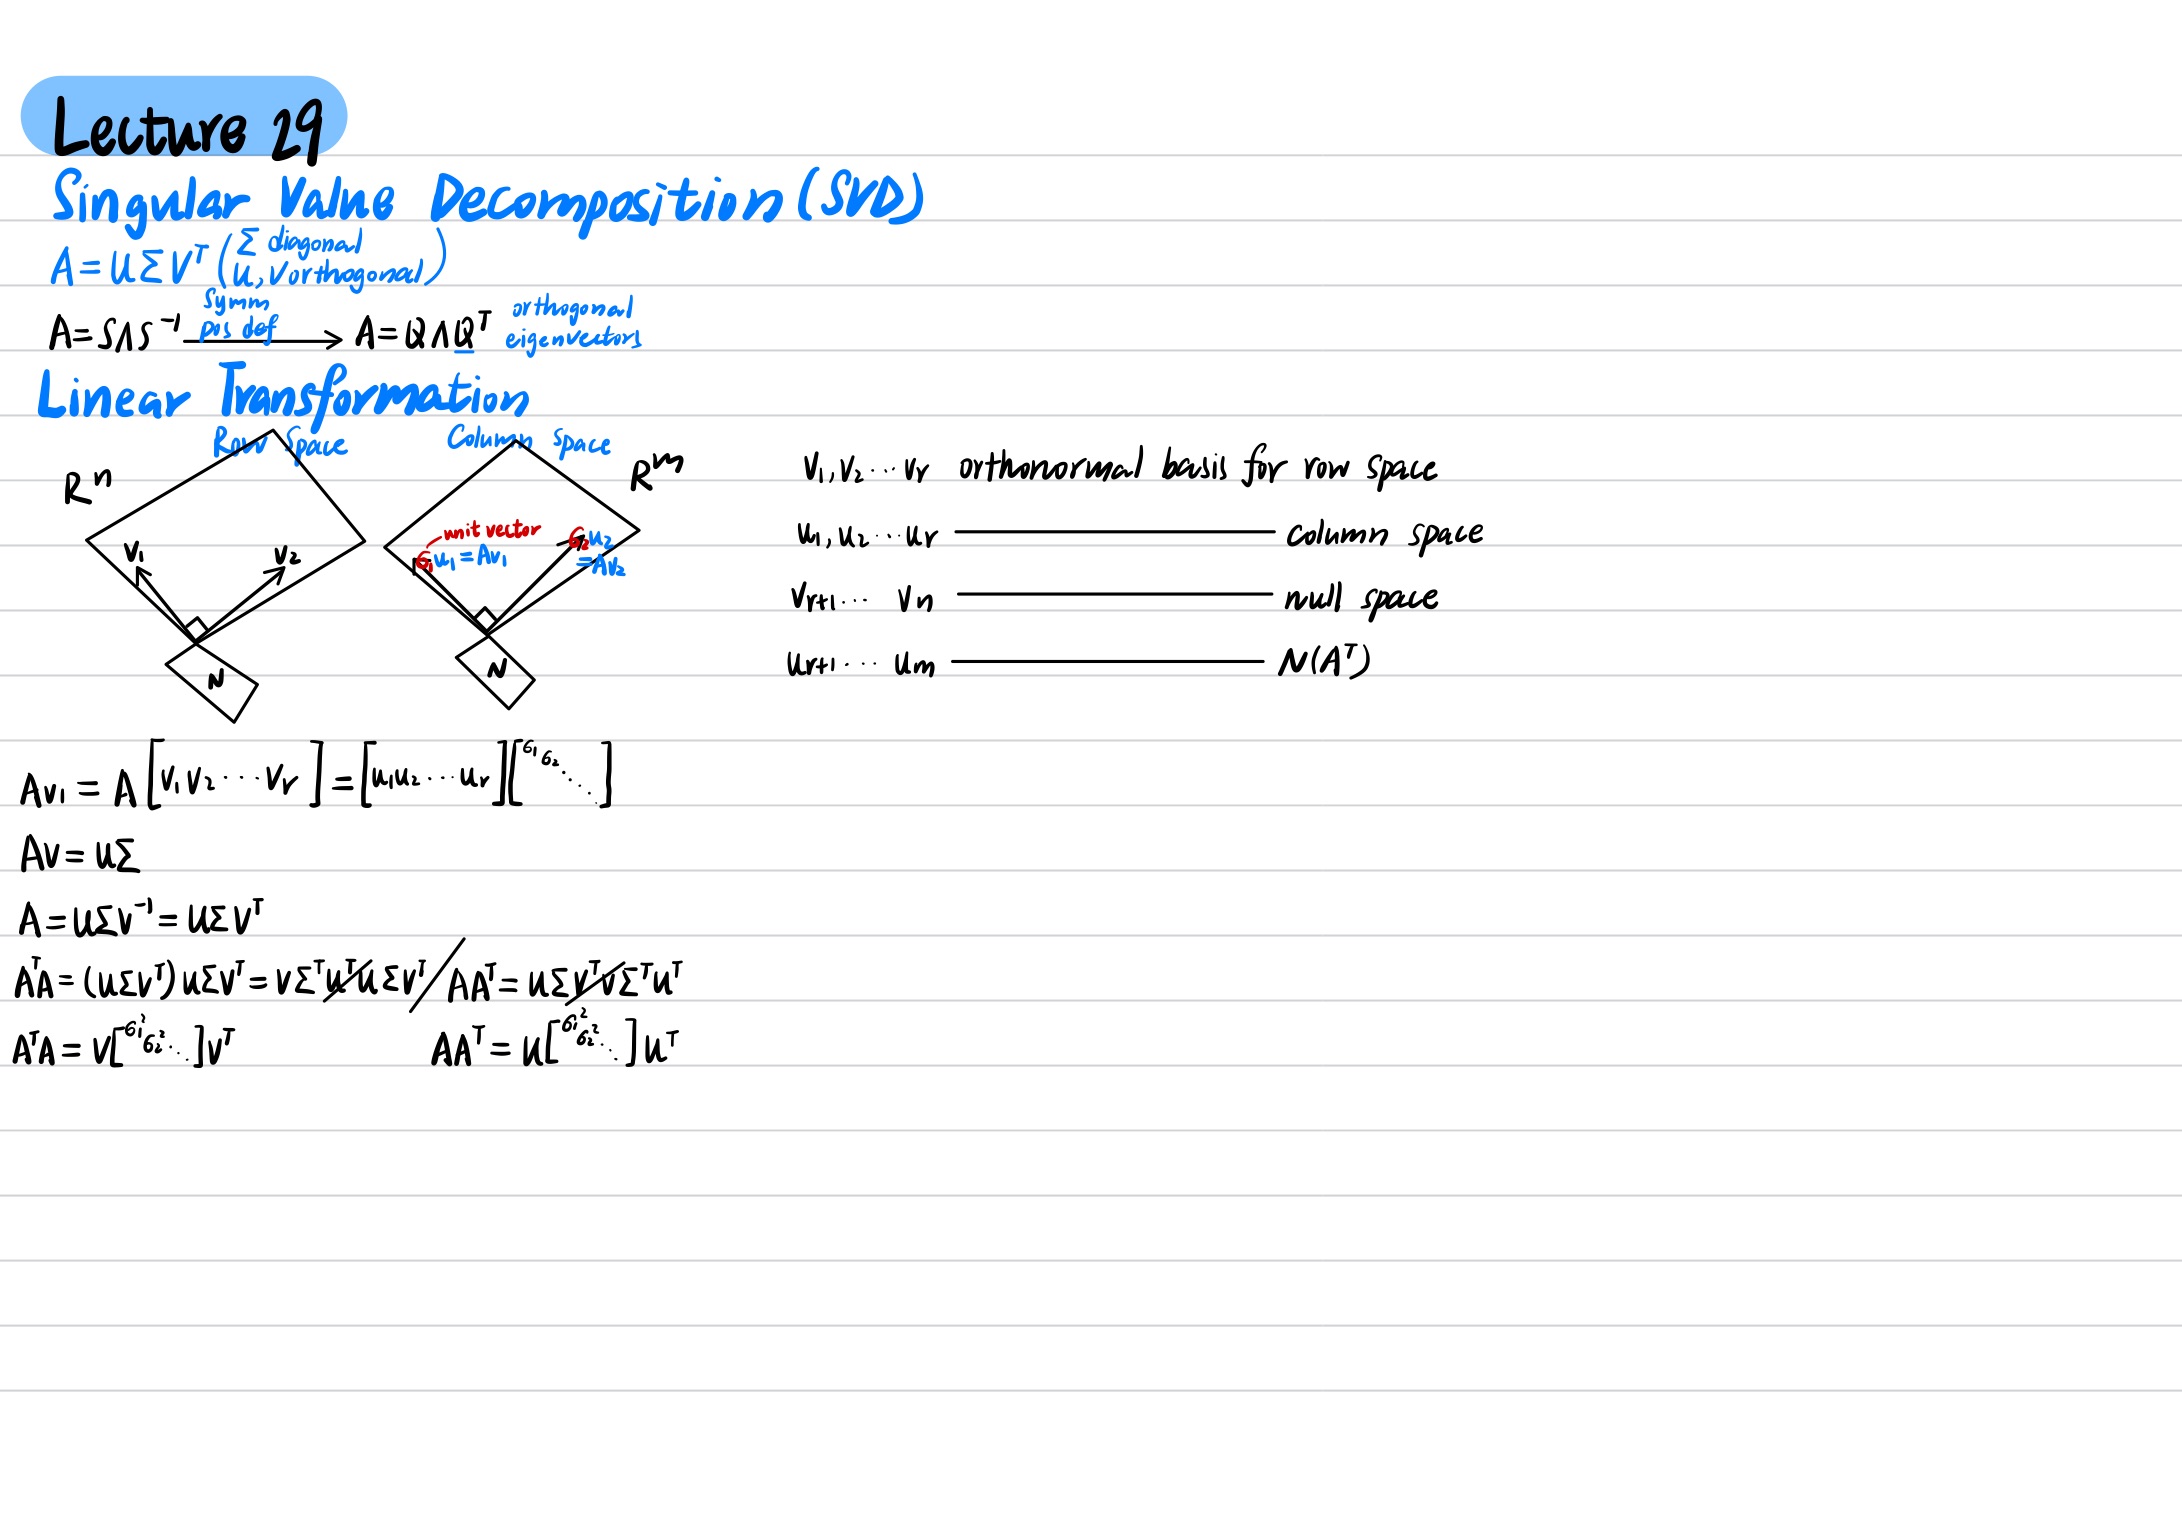 Lecture 29
Singular Value Decomposition (SVD)
A = UΣV^T (Σ diagonal
U, V orthogonal)
A = SΛS^-1 symm pos def → A = QΛQ^T orthogonal eigenvectors
Linear Transformation
Row Space Column Space
R^n R^m
v1 v2
unit vector
σ1 u1 = Av1
σ2 u2 = Av2
N N
v1, v2 ... vr orthonormal basis for row space
u1, u2 ... ur ——— column space
vr+1 ... vn ——— null space
ur+1 ... um ——— N(A^T)
Av1 = A [v1 v2 ... vr] = [u1 u2 ... ur] [σ1 σ2 ⋱]
AV = UΣ
A = UΣV^-1 = UΣV^T
A^T A = (UΣV^T) UΣV^T = VΣ^T U^T U ΣV^T / AA^T = UΣV^T VΣ^T U^T
A^T A = V [σ1^2 σ2^2 ⋱] V^T AA^T = U [σ1^2 σ2^2 ⋱] U^T